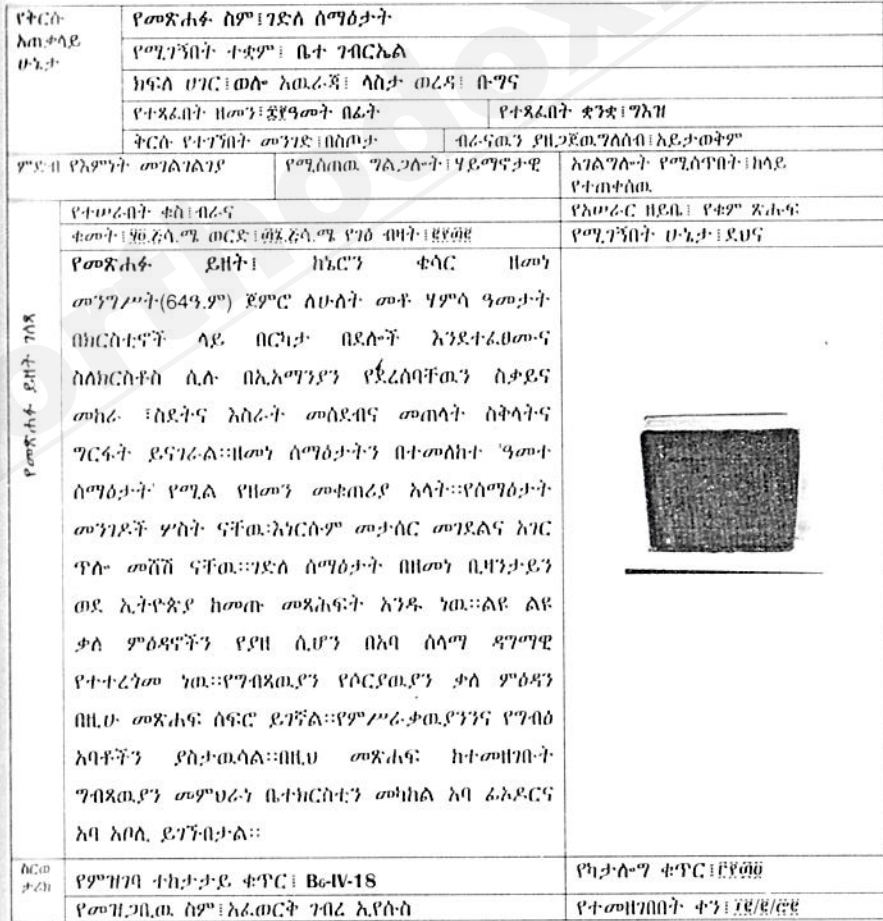 የቅርሱ አጠቃላይ ሁኔታ
የመጽሐፉ ስም፤ገድለ ሰማዕታት
የሚገኝበት ተቋም፤ ቤተ ገብርኤል
ክፍለ ሀገር፤ወሎ አዉራጃ፤ ላስታ ወረዳ፤ ቡግና
የተጻፈበት ዘመን፤ ዓመት በፊት
የተጻፈበት ቋንቋ፤ግእዝ
ቅርሱ የተገኘበት መንገድ፤በስጦታ
ብራናዉን ያዘጋጀዉግለሰብ፤አይታወቅም
ምድብ የእምነት መገልገልገያ
የሚሰጠዉ ግልጋሎት፤ሃይማኖታዊ
አገልግሎት የሚሰጥበት፤ከላይ የተጠቀሰዉ
የመጽሐፉ ይዘት ገለጻ
የተሠራበት ቁስ፤ብራና
የአሠራር ዘይቤ፤ የቁም ጽሑፍ
ቁመት፤ ሳ.ሜ ወርድ፤ ሳ.ሜ የገፅ ብዛት፤
የሚገኝበት ሁኔታ፤ደህና
የመጽሐፉ ይዘት፤ ከኔሮን ቄሳር ዘመነ
መንግሥት(64ዓ.ም) ጀምሮ ለሁለት መቶ ሃምሳ ዓመታት
በክርስቲኖች ላይ በርካታ በደሎች እንደተፈፀሙና
ስለክርስቶስ ሲሉ በኢአማንያን የደረሰባቸዉን ስቃይና
መከራ ፣ስደትና እስራት መሰደብና መጠላት ስቅላትና
ግርፋት ይናገራል።ዘመነ ሰማዕታትን በተመለከተ 'ዓመተ
ሰማዕታት' የሚል የዘመን መቁጠሪያ አላት።የሰማዕታት
መንገዶች ሦስት ናቸዉ፡እነርሱም መታሰር መገደልና አገር
ጥሎ መሸሽ ናቸዉ።ገድለ ሰማዕታት በዘመነ ቢዛንታይን
ወደ ኢትዮጵያ ከመጡ መጻሕፍት አንዱ ነዉ።ልዩ ልዩ
ቃለ ምዕዳኖችን የያዘ ሲሆን በአባ ሰላማ ዳግማዊ
የተተረጎመ ነዉ።የግብጻዉያን የሶርያዉያን ቃለ ምዕዳን
በዚሁ መጽሐፍ ሰፍሮ ይገኛል።የምሥራቃዉያንንና የግብፅ
አባቶችን ያስታዉሳል።በዚህ መጽሐፍ ከተመዘገቡት
ግብጻዉያን መምህራነ ቤተክርስቲን መካከል አባ ፊኦዶርና
አባ አቦሊ ይገኙበታል።
ስርወ ታሪክ
የምዝገባ ተከታታይ ቁጥር፤ BG-IV-18
የካታሎግ ቁጥር፤
የመዝጋቢዉ ስም፤አፈወርቅ ገብረ ኢየሱስ
የተመዘገበበት ቀን፤
orthodox